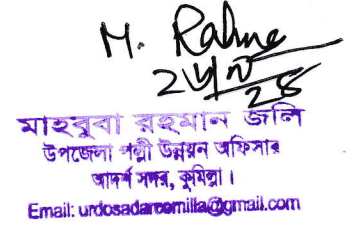 M. Rahma
মাহবুবা রহমান জলি
উপজেলা পল্লী উন্নয়ন অফিসার
আদর্শ সদর, কুমিল্লা।
Email: urdosadarcomilla@gmail.com